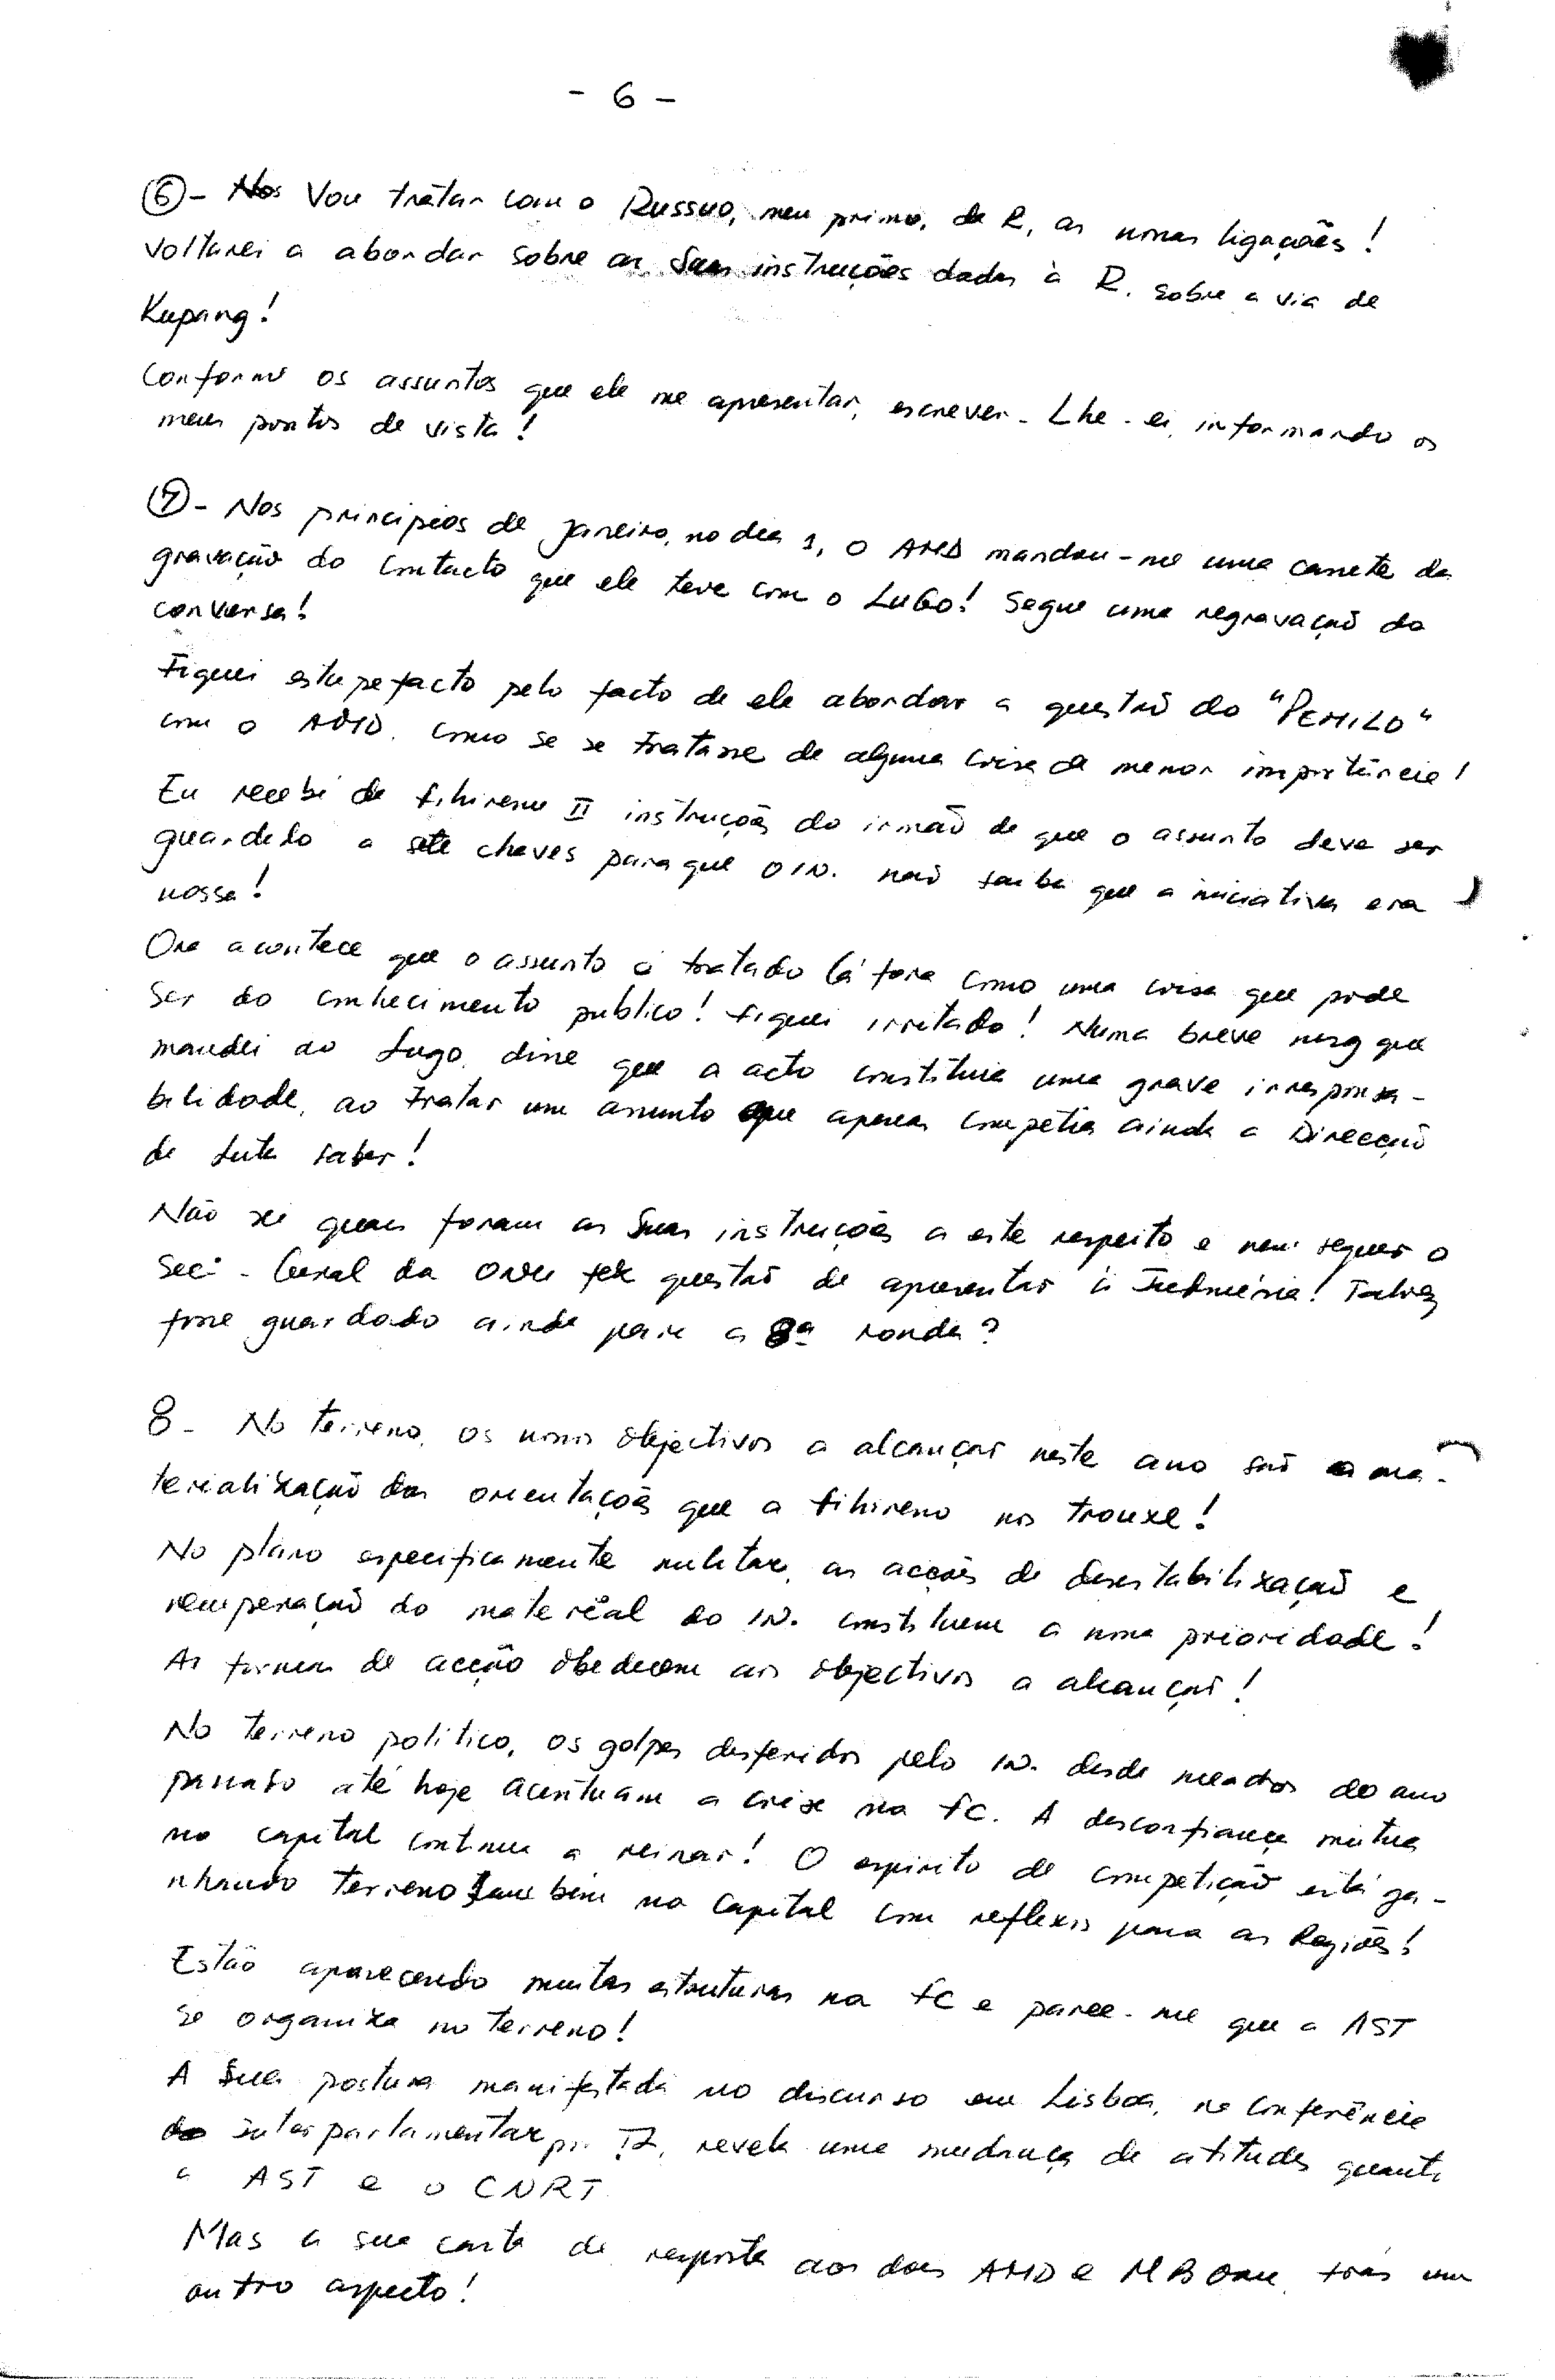 - 6 -
⑥- Nos Vou tratar com o Russuo, meu primo, da R, as nossas ligações!
Voltarei a abordar sobre as Suas instruções dadas à R. sobre a via de
Kupang!
Conforme os assuntos que ele me apresentar, escrever-Lhe-ei, informando os
meus pontos de vista!
⑦- Nos principios de Janeiro, no dia 1, o AMD mandou-me uma cassete da
gravação do contacto que ele teve com o LUGO! Segue uma regravação da
conversa!
Fiquei estupefacto pelo facto de ele abordar a questão do "PEMILO"
com o AMD. Como se se tratasse de alguma coisa de menor importância!
Eu recebi de fihireno II instruções do irmão de que o assunto deve ser
guardado a sete chaves para que o IN. não saiba que a iniciativa era
nossa!
Ora acontece que o assunto é tratado lá fora como uma coisa que pode
ser do conhecimento publico! Fiquei irritado! Numa breve msg que
mandei ao Lugo, disse que o acto constituia uma grave irresponsa-
bilidade, ao tratar um assunto que apenas competia ainda a Direcção
da Luta saber!
Não sei quais foram as Suas instruções a este respeito e nem sequer o
Sec. - Geral da ONU fez questão de apresentar à Indonésia! Talvez
fosse guardado ainda para a 8ª ronda?
8- No terreno, os nossos objectivos a alcançar neste ano são a ma-
terialização das orientações que a fihireno nos trouxe!
No plano especificamente militar, as acções de desestabilização e
recuperação do material do IN. constituem a nossa prioridade!
As formas de acção obedecem aos objectivos a alcançar!
No terreno politico, os golpes desferidos pelo IN. desde meados do ano
passado até hoje acentuam a crise na FC. A desconfiança mútua
na capital continua a reinar! O espirito de competição está ga-
nhando terreno também na capital com reflexos para as Regiões!
Estão aparecendo muitas estruturas na FC e parece-me que a AST
se organiza no terreno!
A Sua postura manifestada no discurso em Lisboa, na Conferência
da interparlamentar pr. TL, revela uma mudança de atitudes quanto
a AST e o CNRT.
Mas a sua carta de resposta aos dois AMD e MB Oan, trás um
outro aspecto!